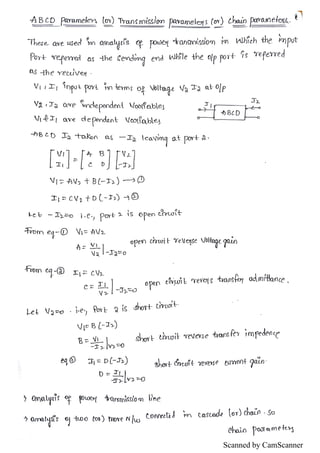 ABCD Parameters (or) Transmission parameters (or) chain parameters.
These are used in analysis of power transmission in which the input
Port referred as the Sending end while the o/p port is referred
as the receiver.
V1, I1 input port in terms of voltage V2 I2 at o/p
V2, I2 are independent Variables
V1 & I1 are dependent Variables
I1 ABCD I2
ABCD I2 taken as -I2 leaving at port 2.
[V1 I1] = [A B C D] [V2 -I2]
V1 = AV2 + B(-I2) → ①
I1 = CV2 + D(-I2) → ②
Let -I2=0 i.e., port 2 is open circuit
From eq-① V1 = AV2
A = V1/V2 | -I2=0 open circuit reverse voltage gain
From eq-② I1 = CV2
C = I1/V2 | -I2=0 open circuit reverse transfer admittance.
Let V2=0 i.e., Port 2 is short circuit
V1 = B(-I2)
B = V1/-I2 | V2=0 short circuit reverse transfer impedence
eq ② I1 = D(-I2) short circuit reverse current gain
D = I1/-I2 | V2=0
> analysis of power transmission line
> analysis of two (or) more N/ws connected in cascade (or) chain. So
chain parameters
Scanned by CamScanner